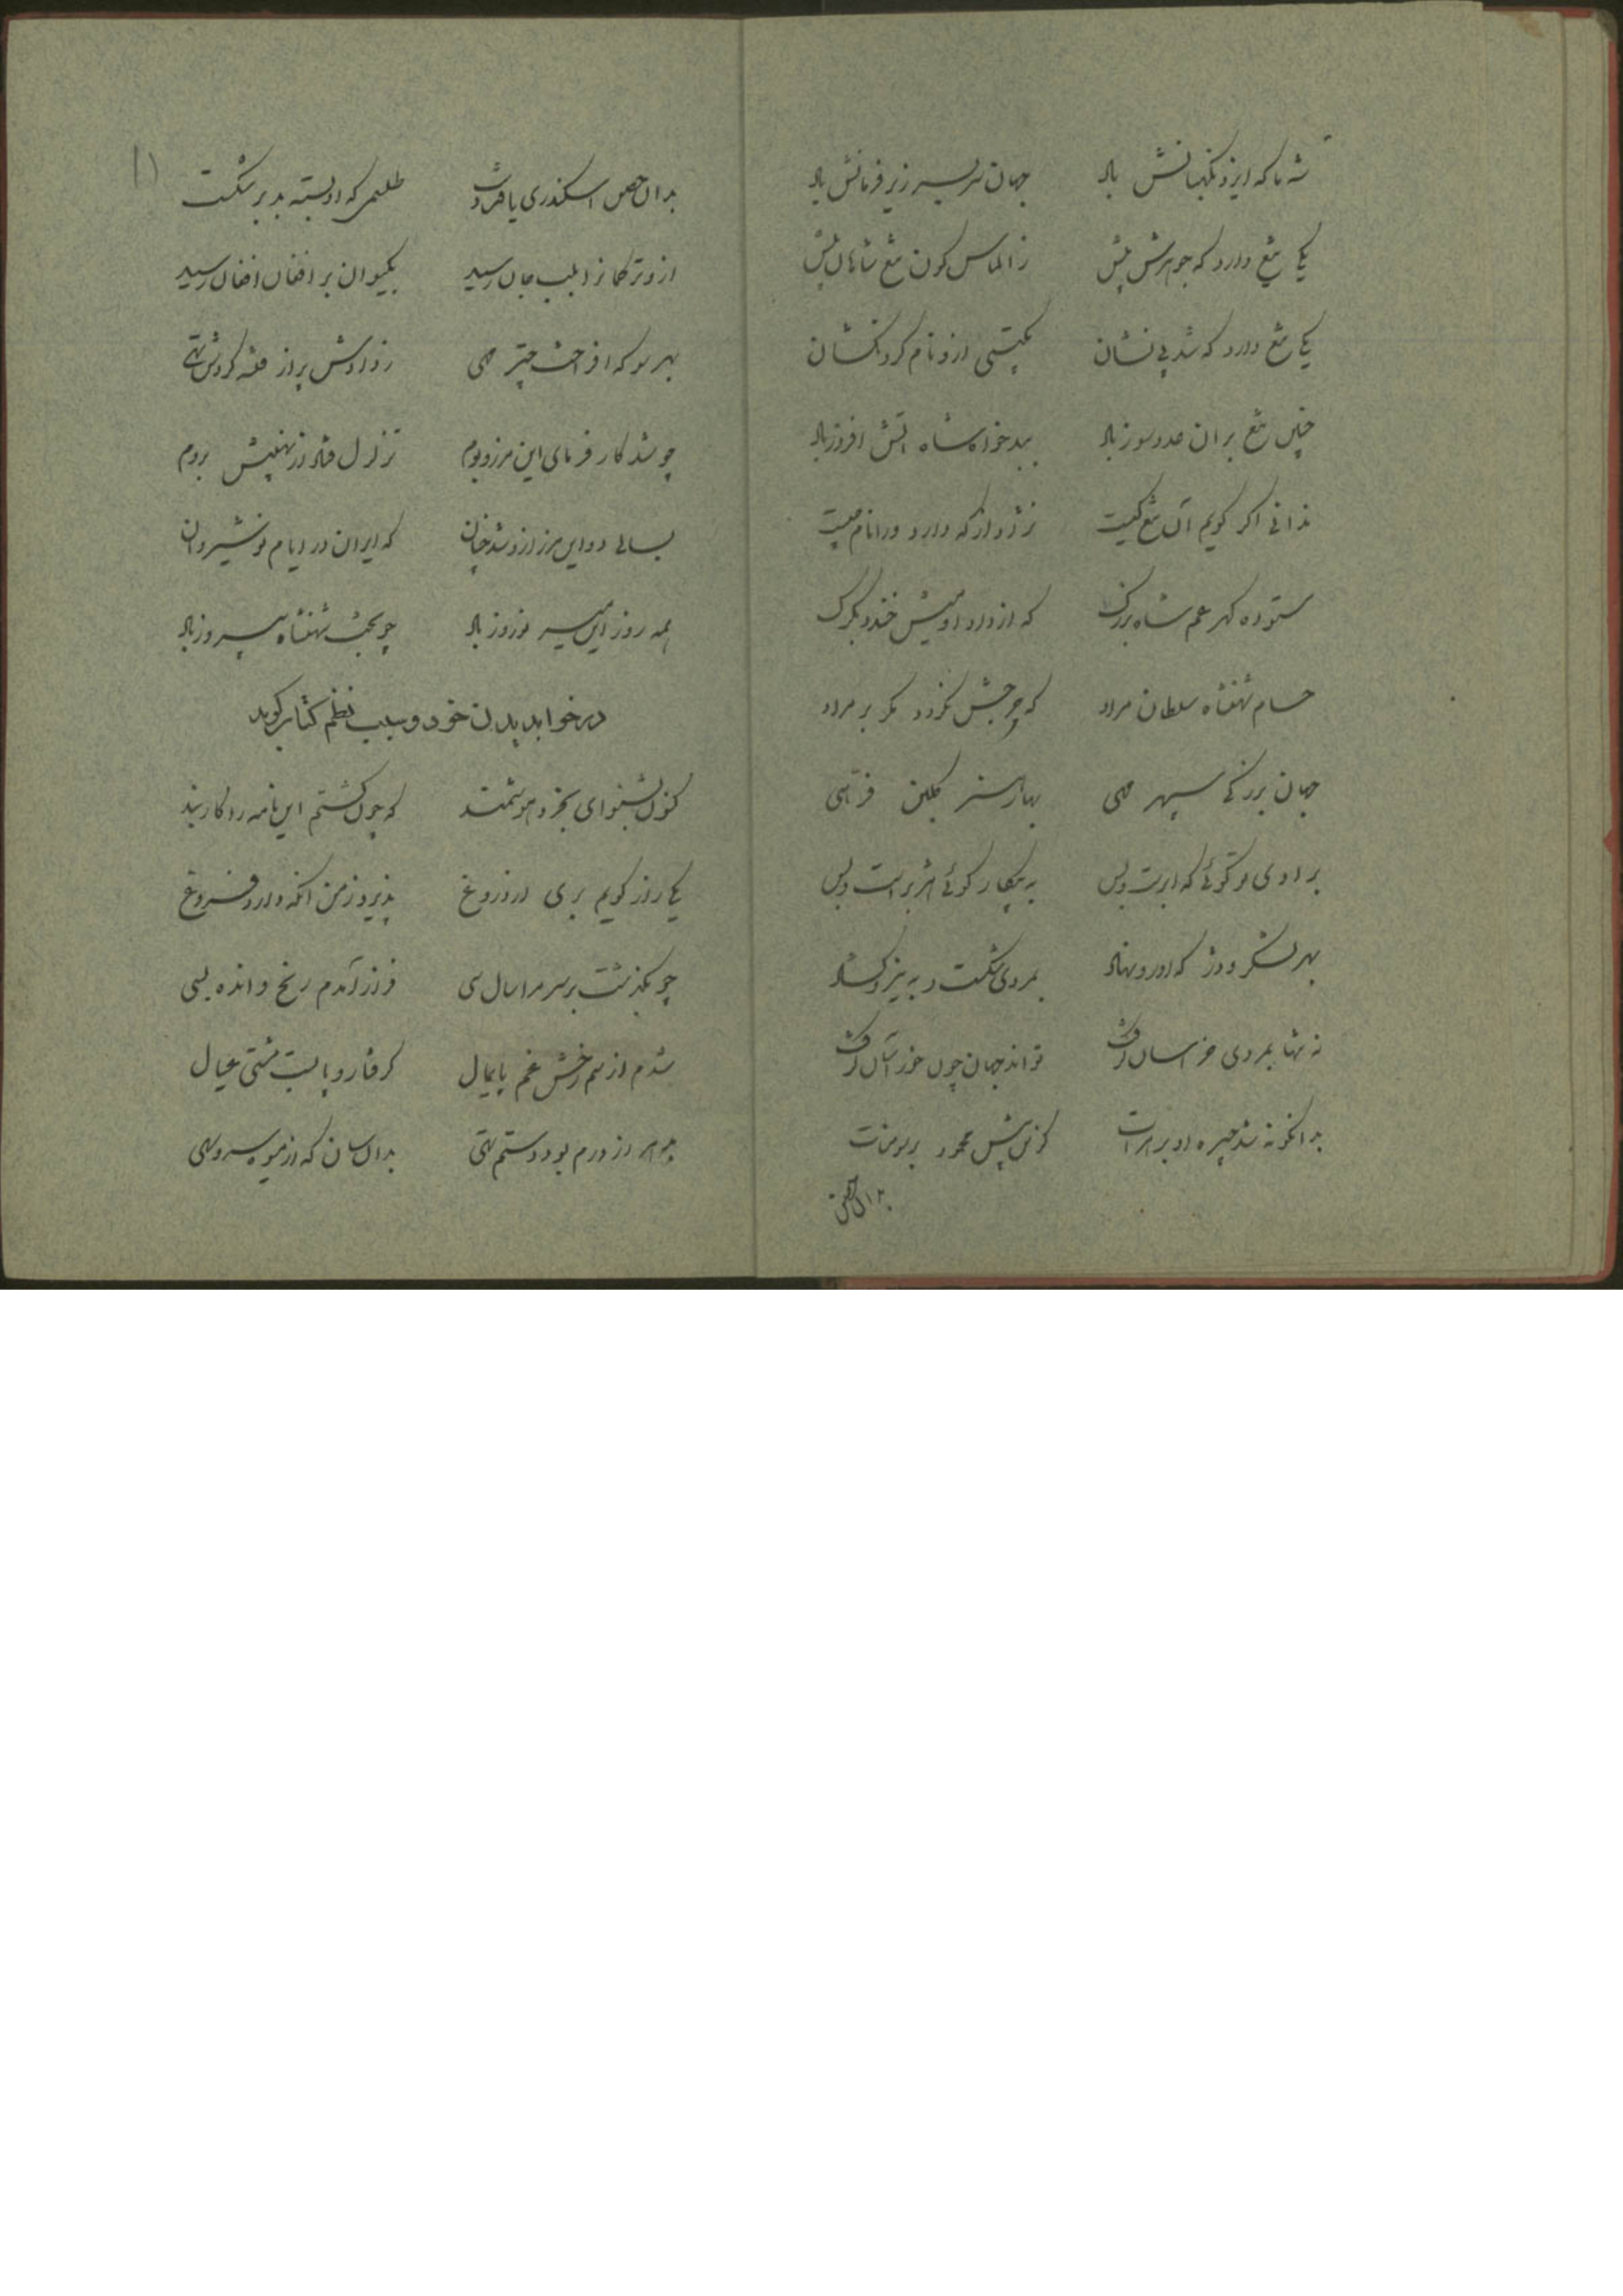 شها که ایزد نگهبانش باد جهان سربسر زیر فرمانش باد
یکی تیغ دارد که جوهرش بیش ز الماس گون تیغ شاهان پیش
یکی تیغ دارد که شد بی نشان بگیتی ازو نام گردنکشان
چنین تیغ بران عدوسوز باد ببدخواه شاه آتش افروز باد
ندانی اگر گویم آن تیغ کیست نژاد از که دارد ورا نام چیست
ستوده گهر عم شاه بزرگ که از داد او میش خندد بگرگ
حسام شهنشاه سلطان مراد که چرخش نگردد مگر بر مراد
جهان بزرگی سپهر مهی بهار هنر گلبن فرّهی
برادی تو گوئی که ابرست و بس به پیکار گوئی هژبرست و بس
بهر لشکر و دژ که او رو نهاد بمردی شکست و به نیزو گشاد
نه تنها بمردی خراسان گرفت تواند جهان چون خور آسان گرفت
بدانگونه شد چیره او بر هرات که زین پیش محمود بر سومنات
بدان حصن
بدان حصن اسکندری یافت دست طلسمی که او بسته بد بر شکست
ازو ترکمانرا بلب جان رسید بکیوان بر افغان افغان رسید
بهر سو که افراخت چتر مهی ز دادش پر از فتنه کردش تهی
چو شد کار فرمای این مرز و بوم تزلزل فتاد از نهیبش بروم
بسالی دو این مرز ازو شد چنان که ایران در ایام نوشیروان
همه روز این میر نوروز باد چو بخت شهنشاه پیروز باد
در خواب دیدن خود و سبب نظم کتاب گوید
کنون بشنو ای بخرد هوشمند که چون گشتم این نامه را کاربند
یکی راز گویم بری از دروغ پذیرد ز من آنکه دارد فروغ
چو بگذشت بر سر مرا سال سی فراز آمدم رنج و انده بسی
شدم از سم رخش غم پایمال گرفتار و پابست مشتی عیال
هم از درم بود دستم تهی بدان سان که از میوه سرو سهی
۱۱